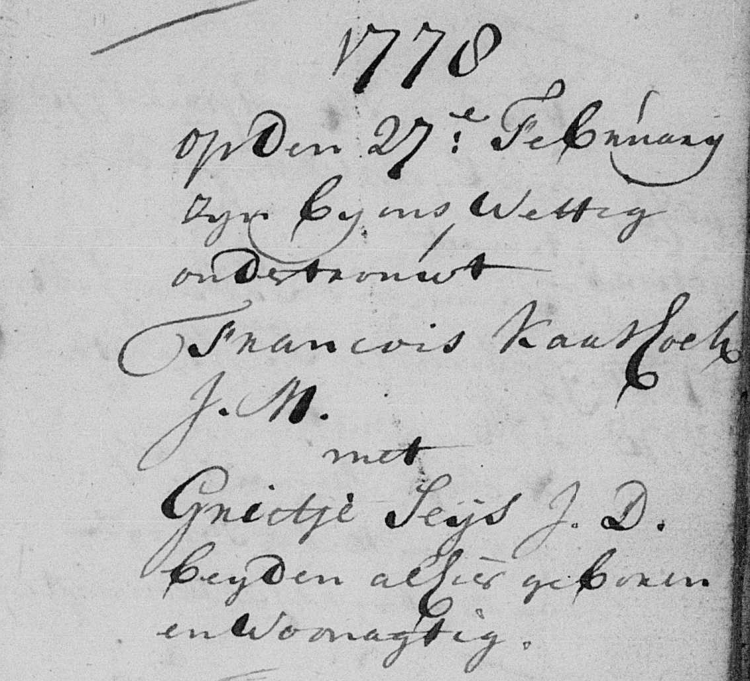 1778
op den 27e: February
zyn by ons Wettig
ondertrouwt
Francois Kaashoek
J. M.
met
Grietje Seijs J. D.
beyden alhier geboren
en Woonagtig.